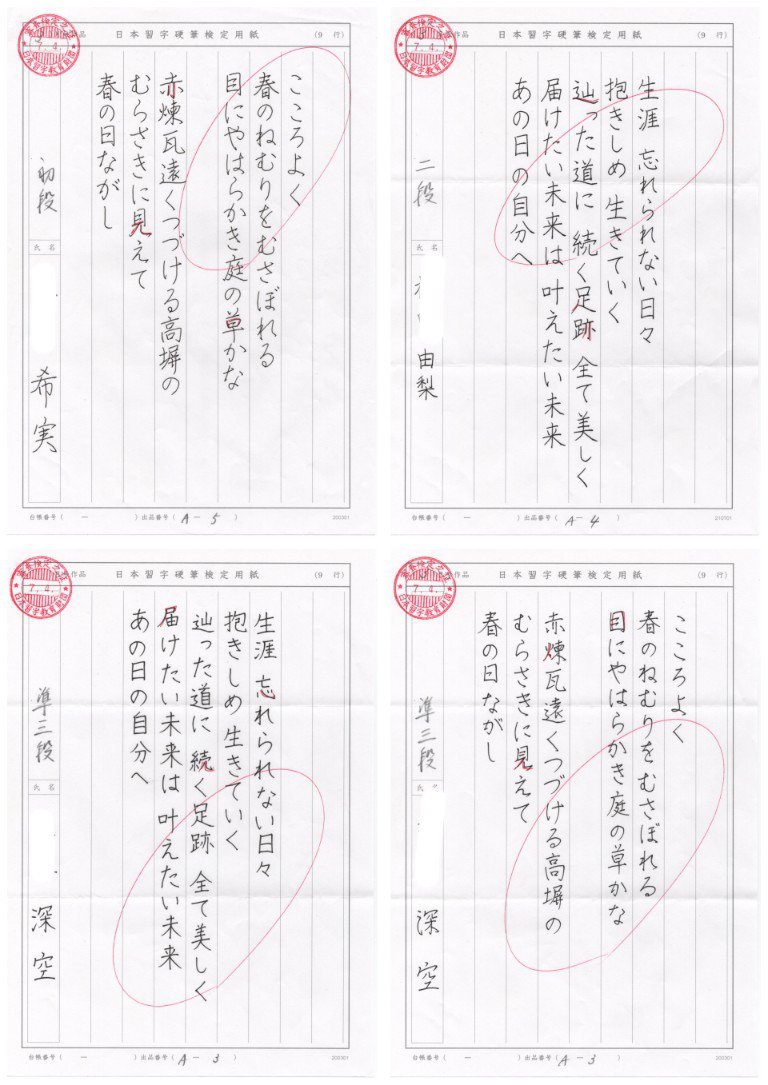 日本習字硬筆検定用紙
(9 行)
こころよく
春のねむりをむさぼれる
目にやはらかき庭の草かな
赤煉瓦遠くつづける高塀の
むらさきに見えて
春の日ながし
初段
氏名
希実
台帳番号( ー )出品番号( A-5 )
200901
日本習字硬筆検定用紙
(9 行)
生涯 忘れられない日々
抱きしめ 生きていく
辿った道に 続く足跡 全て美しく
届けたい未来は 叶えたい未来
あの日の自分へ
二段
氏名
由梨
台帳番号( ー )出品番号( A-4 )
日本習字硬筆検定用紙
(9 行)
生涯 忘れられない日々
抱きしめ 生きていく
辿った道に 続く足跡 全て美しく
届けたい未来は 叶えたい未来
あの日の自分へ
準三段
氏名
深空
台帳番号( ー )出品番号( A-3 )
日本習字硬筆検定用紙
(9 行)
こころよく
春のねむりをむさぼれる
目にやはらかき庭の草かな
赤煉瓦遠くつづける高塀の
むらさきに見えて
春の日ながし
準三段
氏名
深空
台帳番号( ー )出品番号( A-3 )